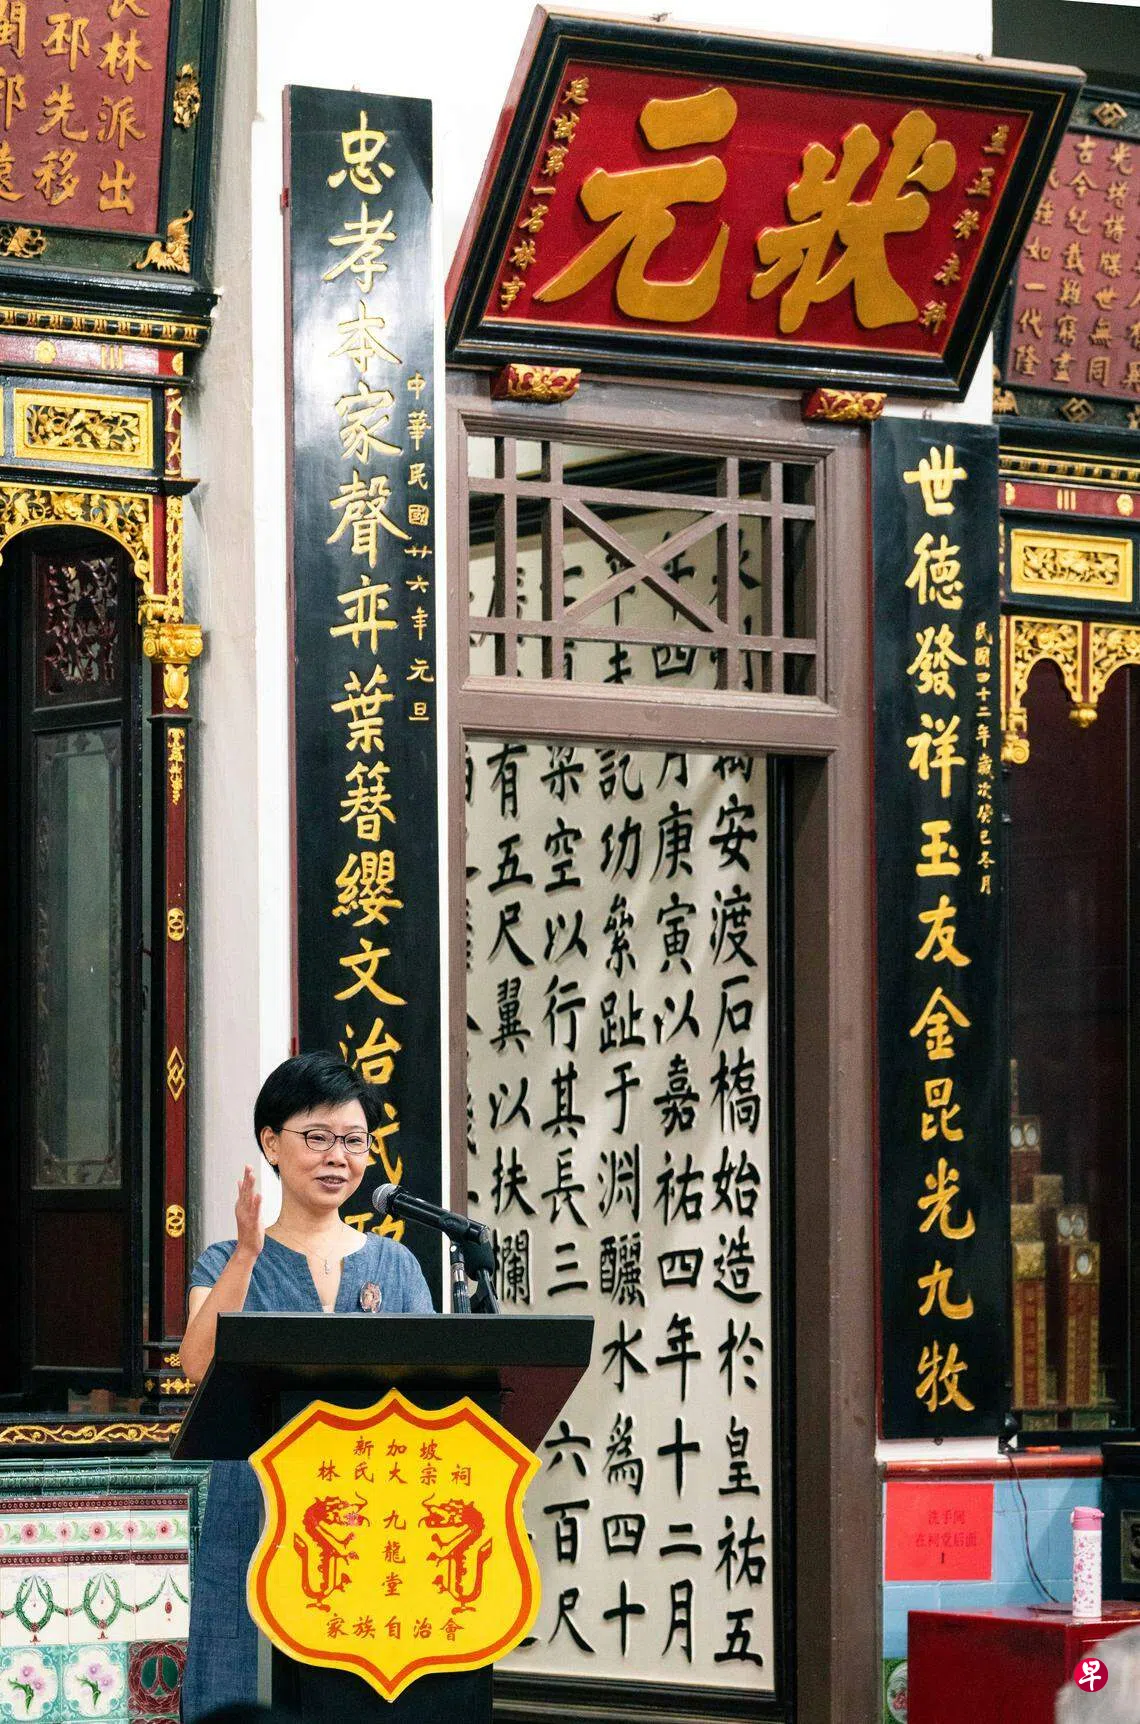 林派出
先移
狀元
試第一名林亨
光增譜牒世無同
古今紀載難窮盡
如一代隆
世德發祥玉友金昆光九牧
民國四十二年歲次癸巳冬月
忠孝本家聲弈葉簪纓文治武功
中華民國廿六年元旦
安渡石橋始造於皇祐五
月庚寅以嘉祐四年十二月
訖功絫趾于淵釃水為四十
梁空以行其長三 六百尺
有五尺翼以扶欄
新加坡
林氏大宗祠
九龍堂
家族自治會
洗手间
在祠堂后面
早